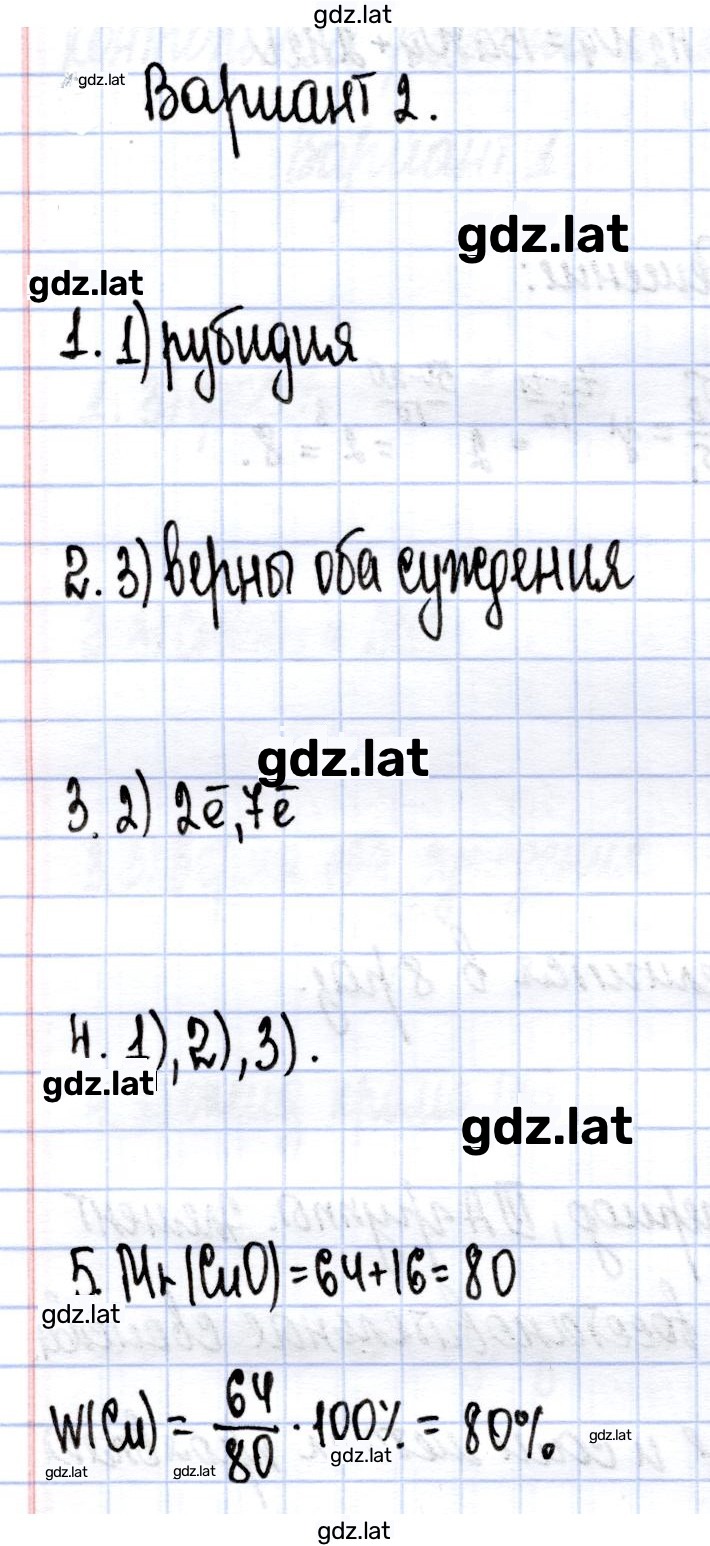 gdz.lat
gdz.lat
Вариант 2.
gdz.lat
gdz.lat
1. 1) рубидия
2. 3) верны оба суждения
gdz.lat
3. 2) 2ē, 7ē
4. 1), 2), 3).
gdz.lat
gdz.lat
5. Mr(CuO) = 64+16 = 80
gdz.lat
W(Cu) = 64/80 · 100% = 80%.
gdz.lat
gdz.lat
gdz.lat
gdz.lat
gdz.lat